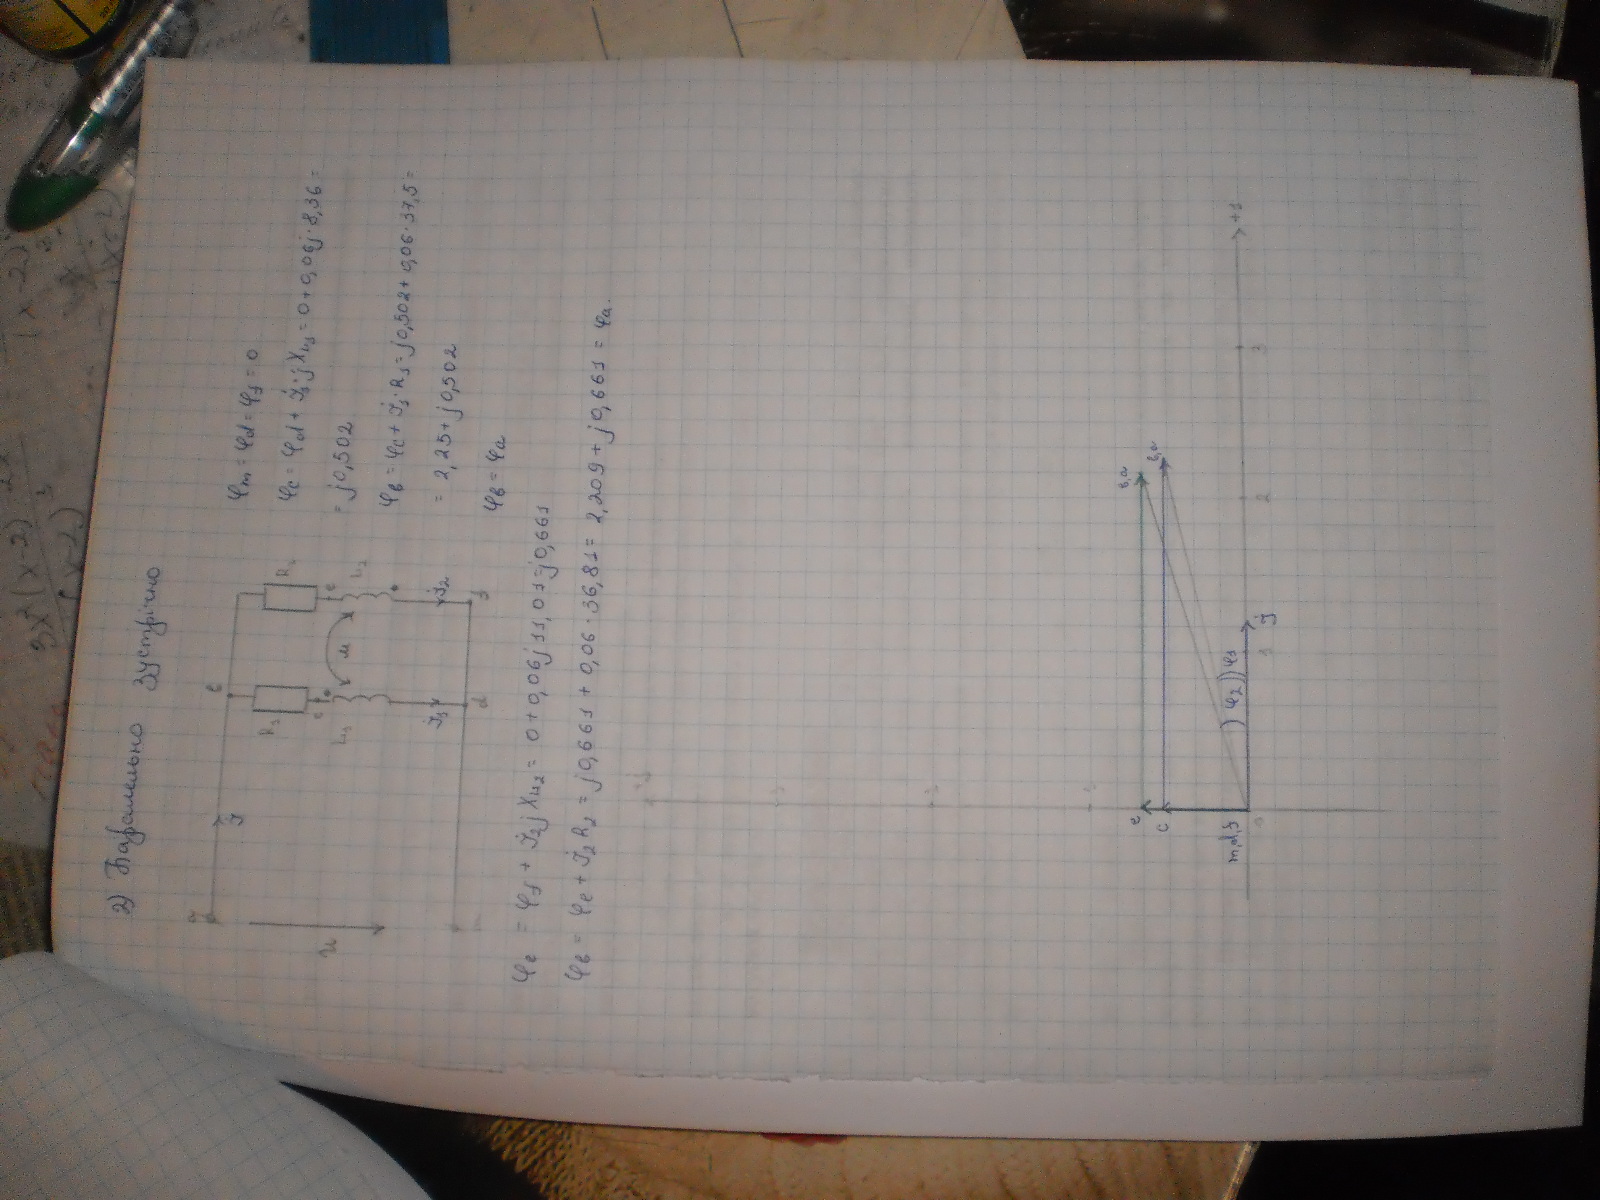 2) Паралельно зустрічно
a
İ
в
R₁
R₂
c
e
L₁
L₂
M
İ₁
İ₂
d
f
u
φm = φd = φf = 0
φc = φd + İ₁·jX_L₁ = 0 + 0,06j·8,36 =
= j0,502
φв = φc + İ₁·R₁ = j0,502 + 0,06·37,5 =
= 2,25 + j0,502
φв = φa
φe = φf + İ₂jX_L₂ = 0 + 0,06j11,01 = j0,661
φв = φe + İ₂R₂ = j0,661 + 0,06·36,81 = 2,209 + j0,661 = φa.
+j
3
2
1
e
c
в,a
в,a
m,d,f
0
φ₂
φ₁
1
İ
2
3
+1